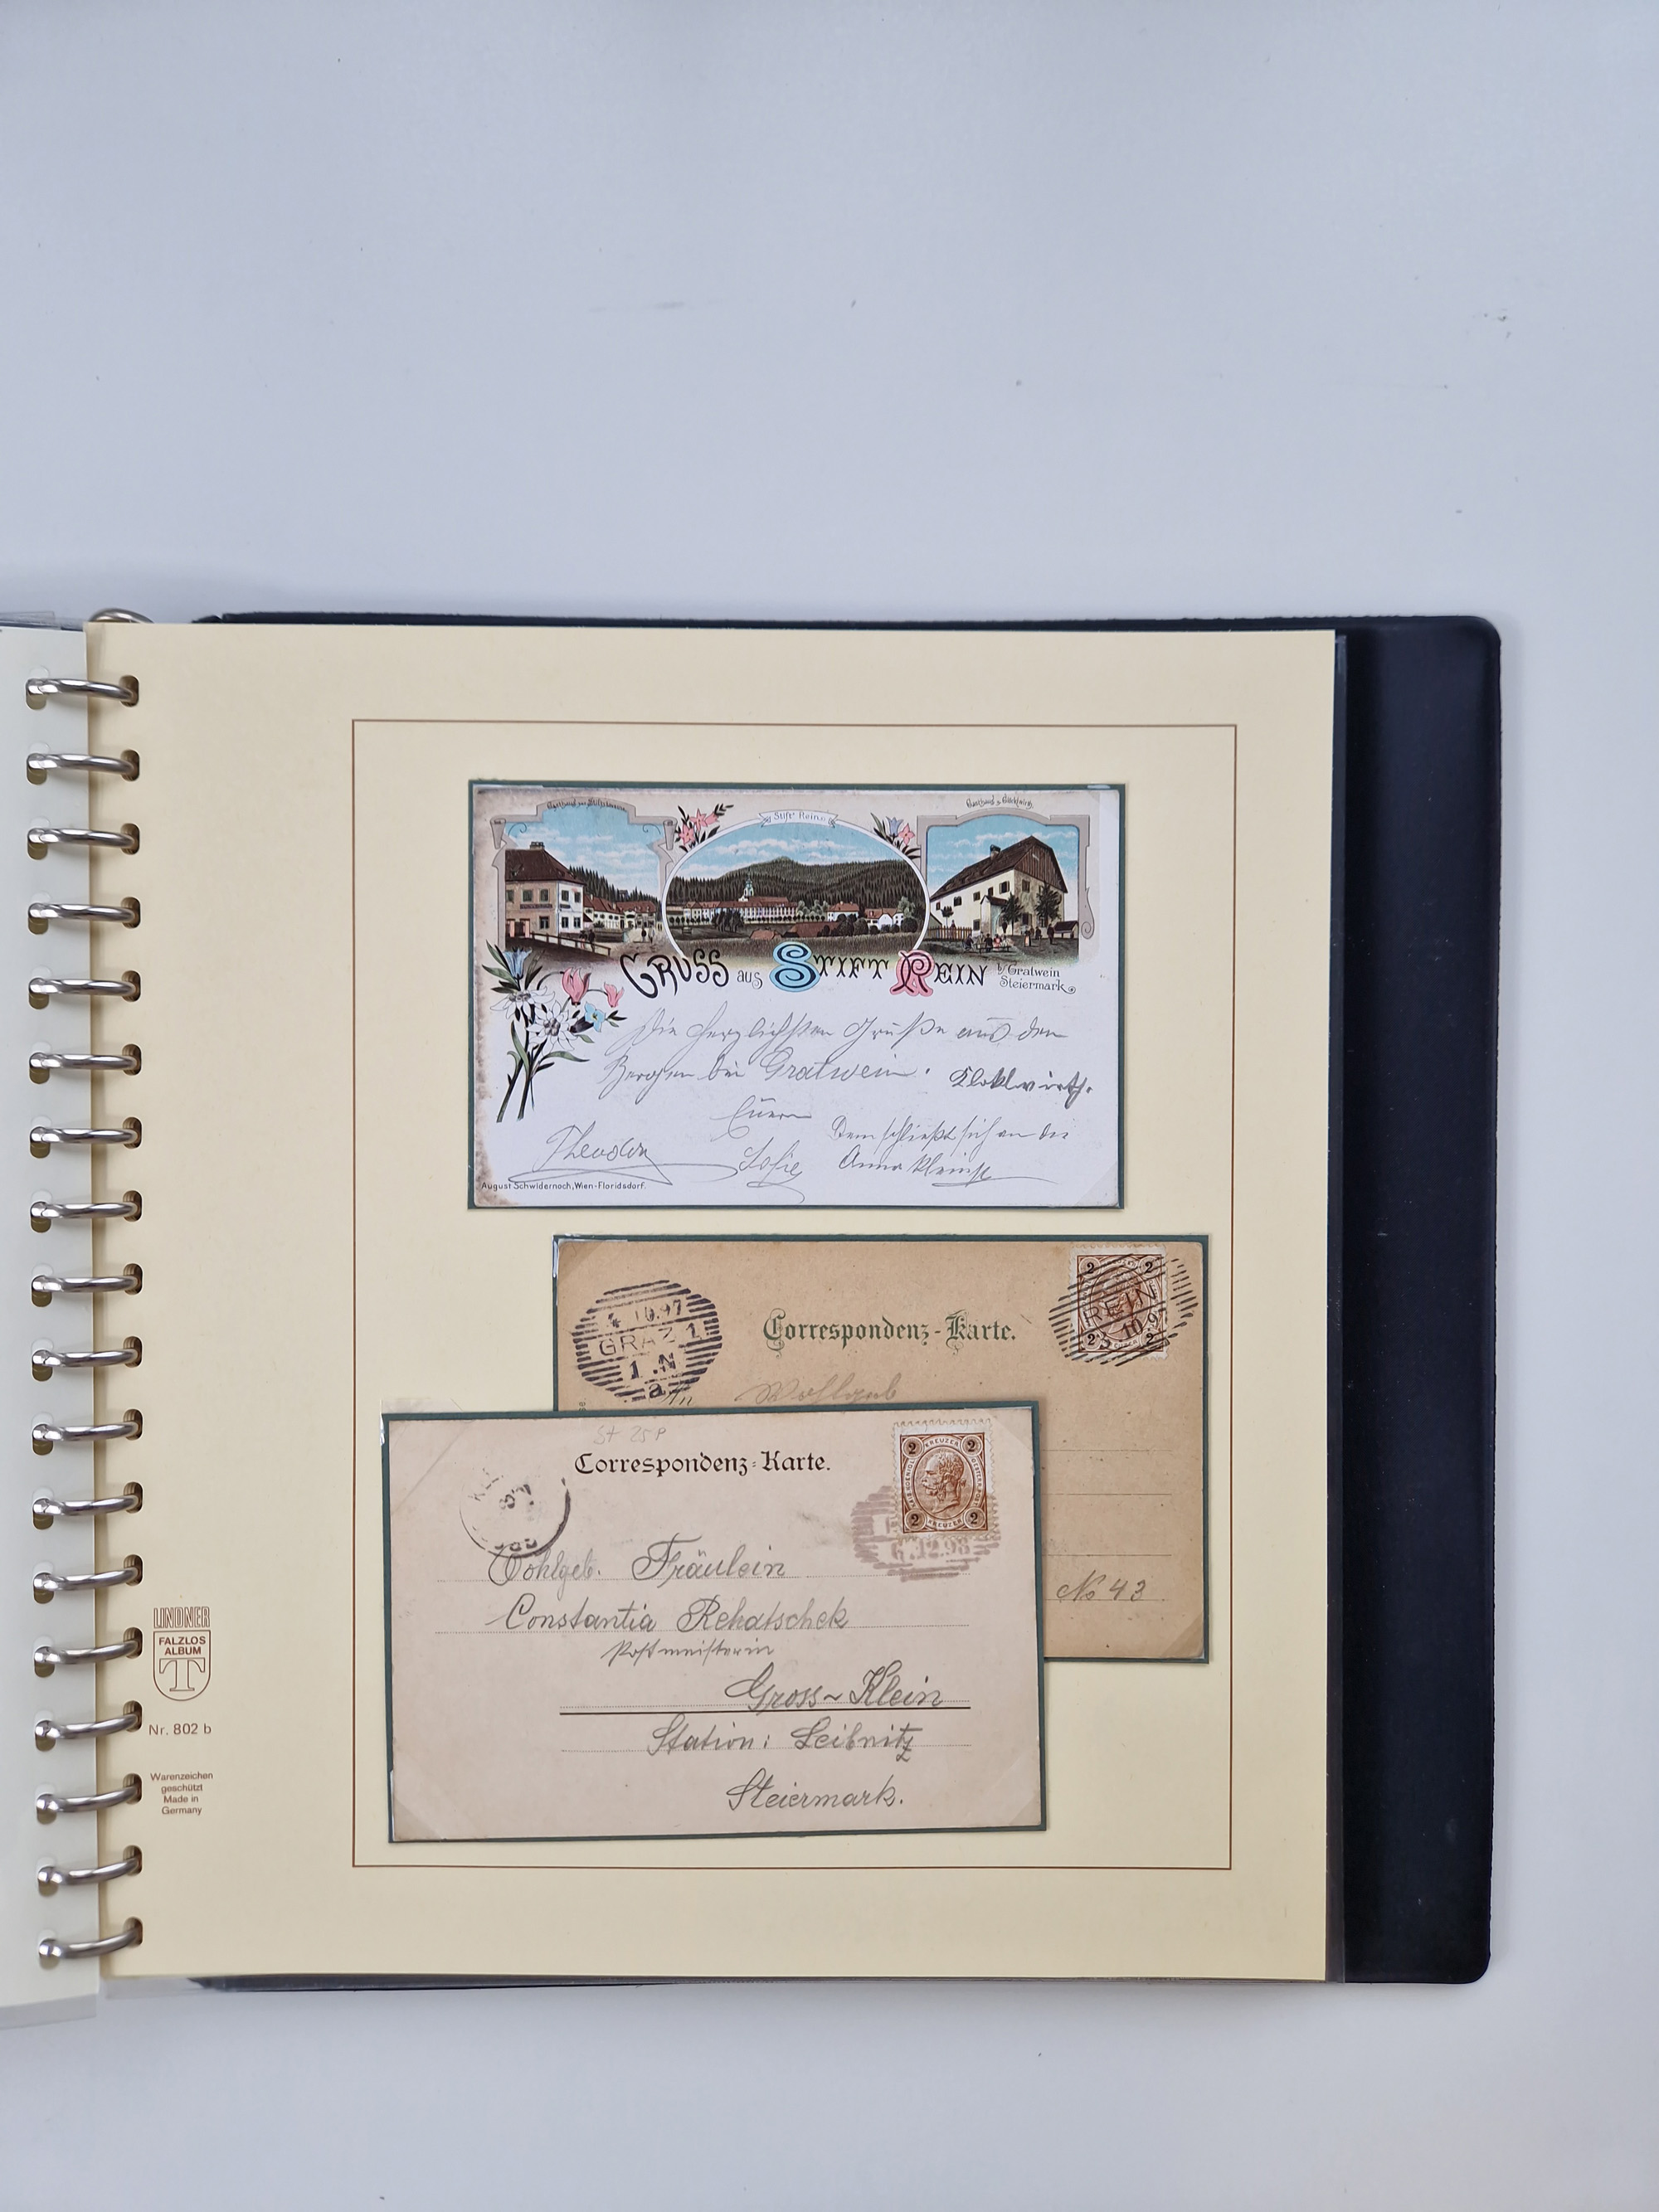 Stift Rein
GRUSS aus STIFT REIN b/Gratwein
Steiermark
Die herzlichsten Grüße aus den
Bergen bei Gratwein.
Euere
Theodor
Sofie
Dem schließt sich an die
Anna
August Schwidernoch, Wien-Floridsdorf.
10.97
GRAZ 1
1.N
a
Correspondenz-Karte.
2 2
REIN
10.9
2 2
An Wohlgeb
No 43
St 25 P
Correspondenz-Karte.
2 KREUZER 2
2 KREUZER 2
12.98
Wohlgeb. Fräulein
Constantia Rehatschek
Postmeisterin
Gross-Klein
Station: Leibnitz
Steiermark.
LINDNER
FALZLOS
ALBUM
T
Nr. 802 b
Warenzeichen
geschützt
Made in
Germany